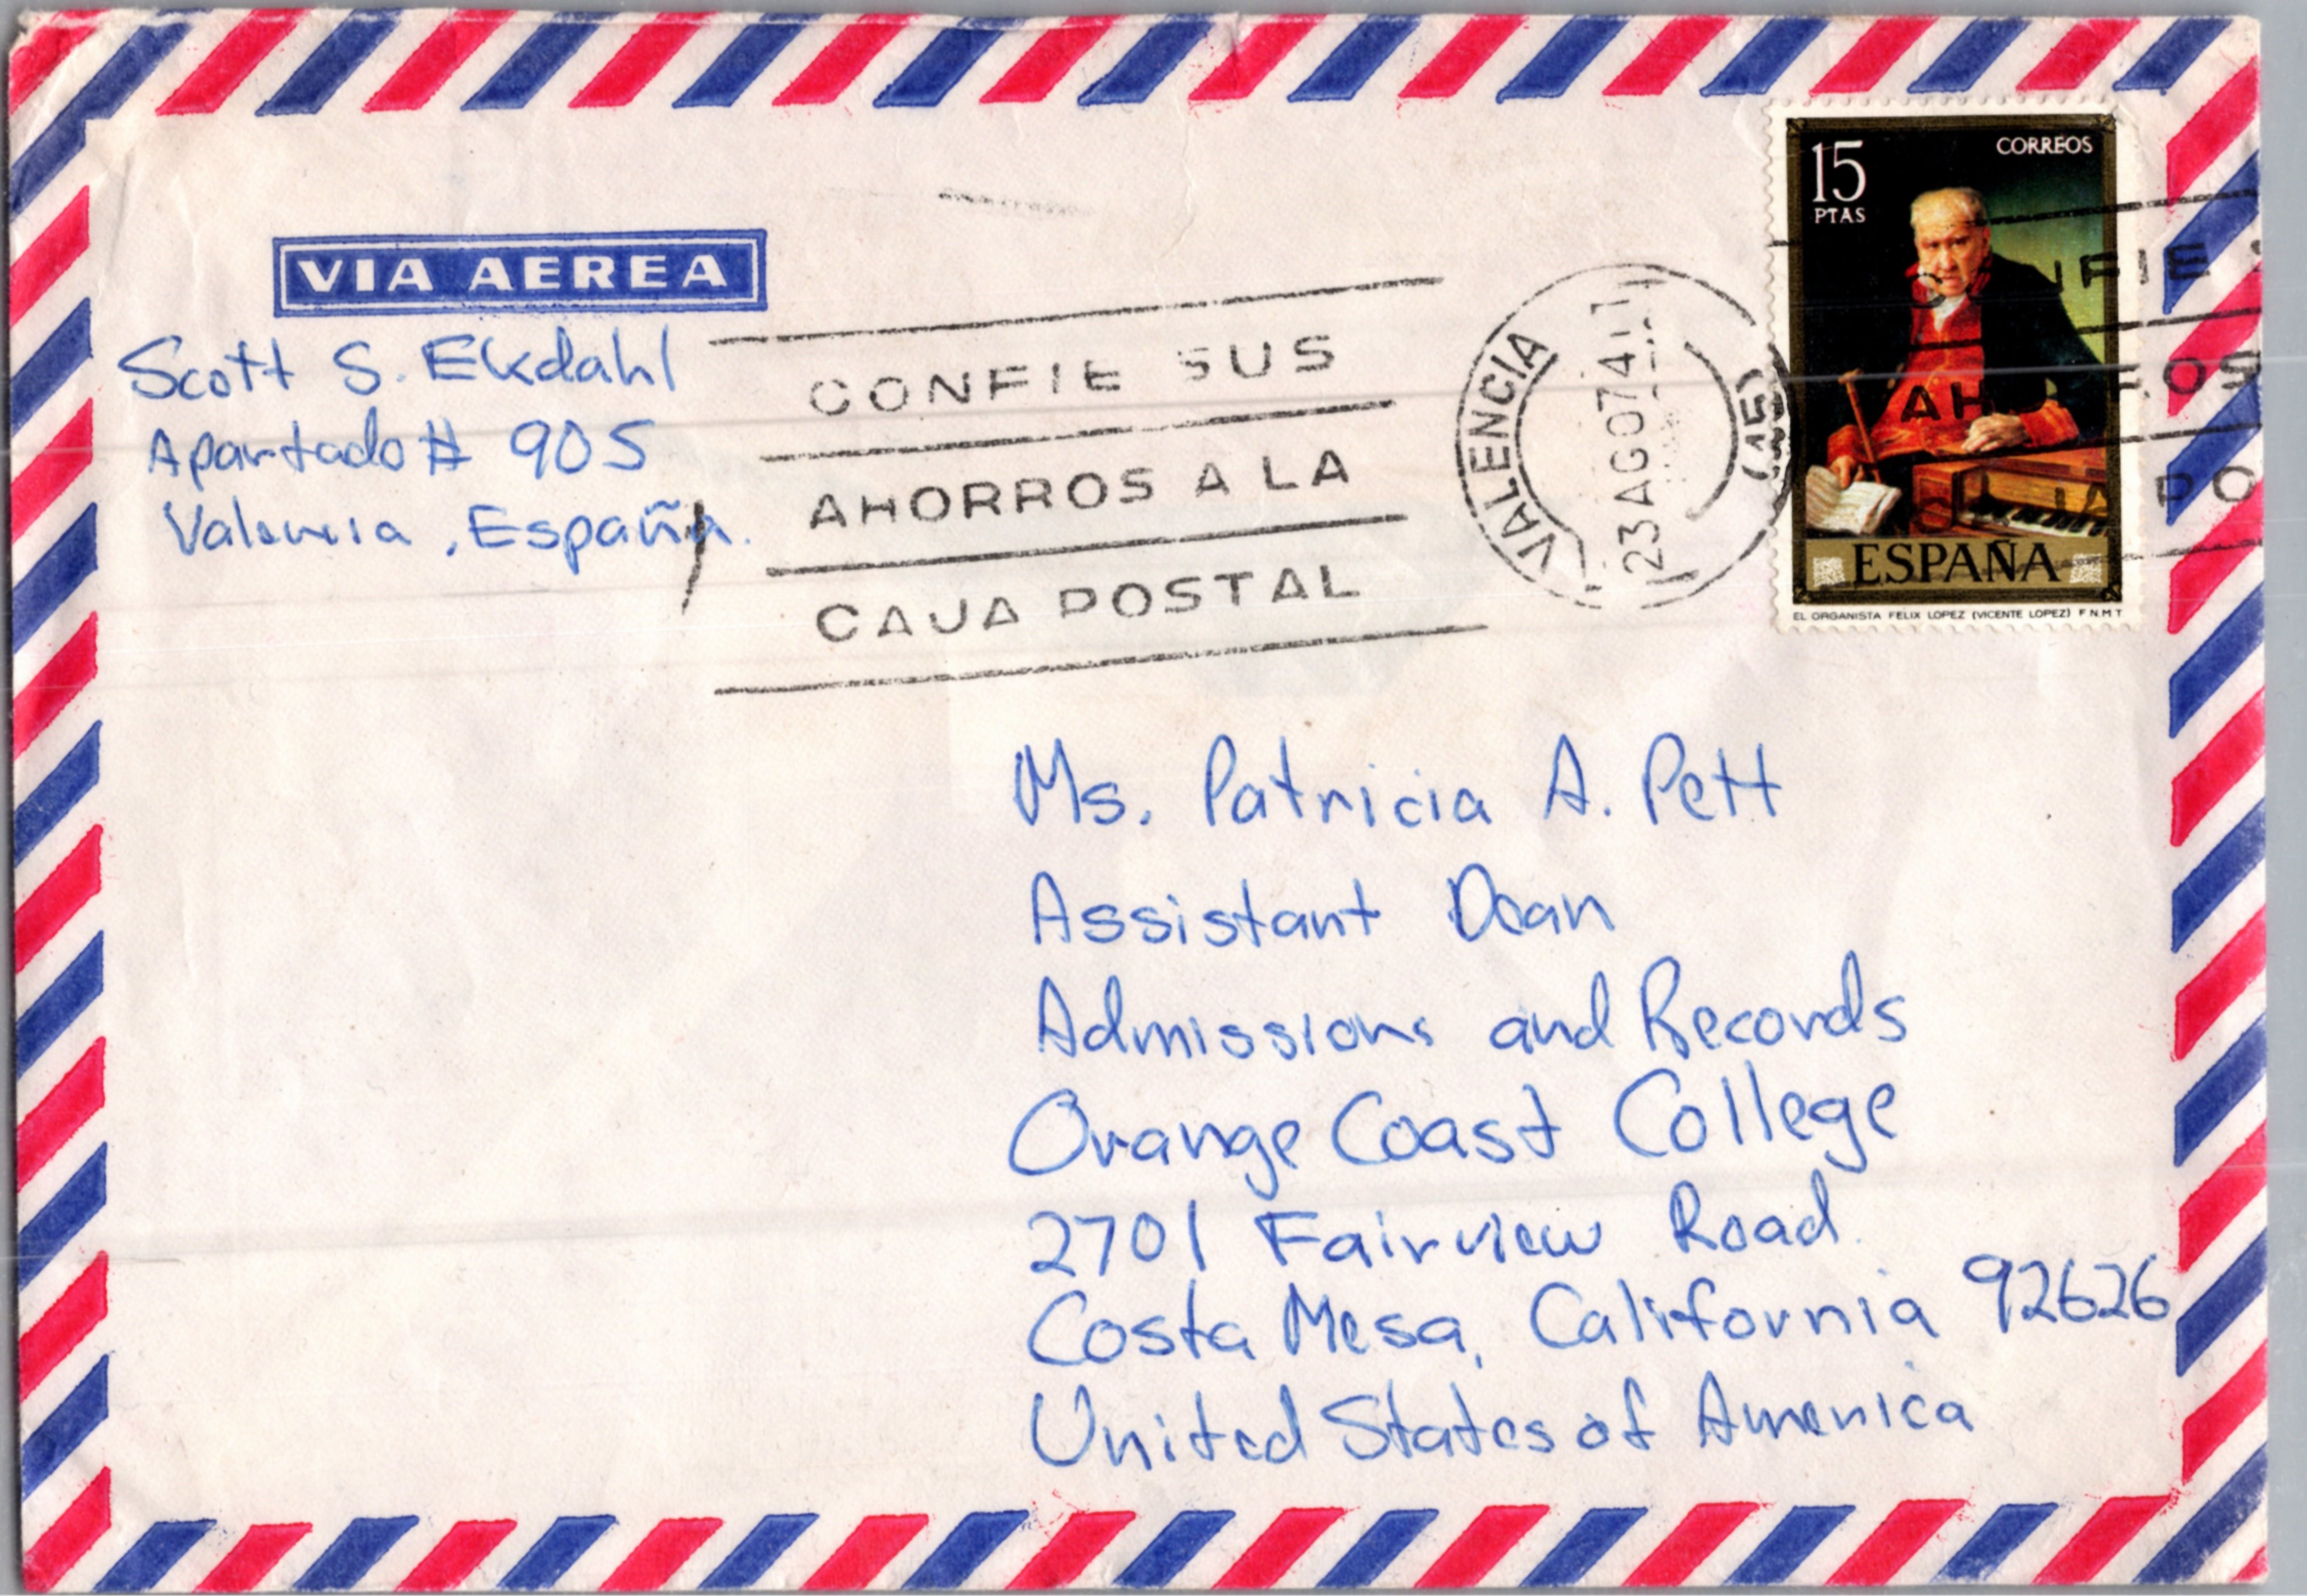 VIA AEREA
Scott S. Ekdahl
Apartado # 905
Valencia, España.
CONFIE SUS
AHORROS A LA
CAJA POSTAL
VALENCIA
23 AGO 74
15
PTAS
CORREOS
ESPAÑA
EL ORGANISTA FELIX LOPEZ (VICENTE LOPEZ) F.N.M.T
Ms. Patricia A. Pett
Assistant Dean
Admissions and Records
Orange Coast College
2701 Fairview Road
Costa Mesa, California 92626
United States of America